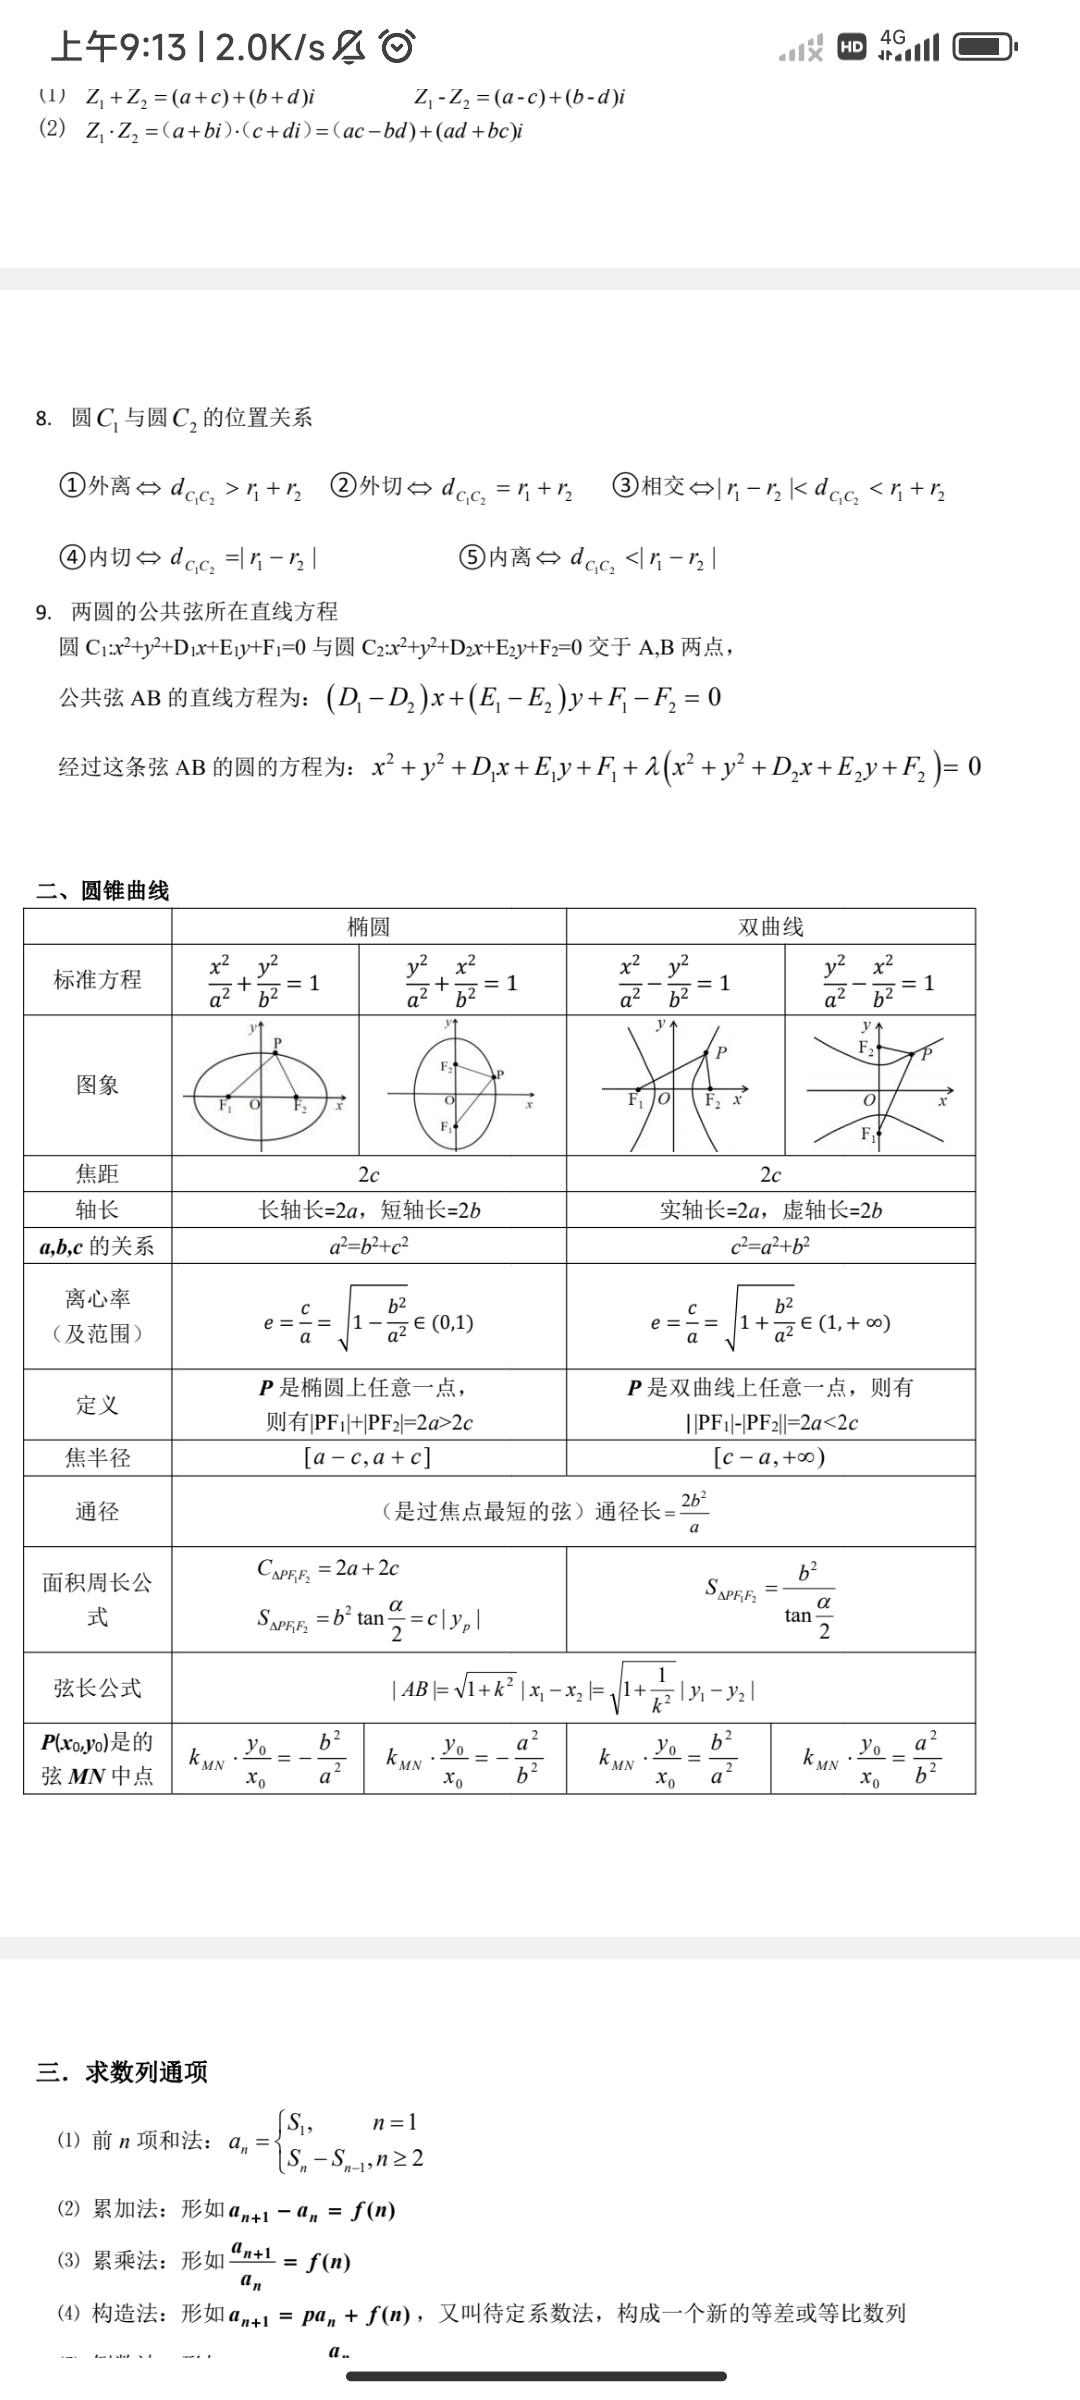 上午9:13 | 2.0K/s HD 4G
(1) Z₁+Z₂=(a+c)+(b+d)i Z₁-Z₂=(a-c)+(b-d)i
(2) Z₁·Z₂=(a+bi)·(c+di)=(ac-bd)+(ad+bc)i
8. 圆C₁与圆C₂的位置关系
①外离⇔d_{C₁C₂}>r₁+r₂ ②外切⇔d_{C₁C₂}=r₁+r₂ ③相交⇔|r₁-r₂|<d_{C₁C₂}<r₁+r₂
④内切⇔d_{C₁C₂}=|r₁-r₂| ⑤内离⇔d_{C₁C₂}<|r₁-r₂|
9. 两圆的公共弦所在直线方程
圆 C₁:x²+y²+D₁x+E₁y+F₁=0 与圆 C₂:x²+y²+D₂x+E₂y+F₂=0 交于 A,B 两点，
公共弦 AB 的直线方程为：(D₁-D₂)x+(E₁-E₂)y+F₁-F₂=0
经过这条弦 AB 的圆的方程为：x²+y²+D₁x+E₁y+F₁+λ(x²+y²+D₂x+E₂y+F₂)=0
二、圆锥曲线
椭圆 双曲线
标准方程 x²/a²+y²/b²=1 y²/a²+x²/b²=1 x²/a²-y²/b²=1 y²/a²-x²/b²=1
图象 y P F₁ O F₂ x y F₂ P O x F₁ y P F₁ O F₂ x y F₂ P O x F₁
焦距 2c 2c
轴长 长轴长=2a，短轴长=2b 实轴长=2a，虚轴长=2b
a,b,c 的关系 a²=b²+c² c²=a²+b²
离心率
（及范围） e=c/a=√(1-b²/a²)∈(0,1) e=c/a=√(1+b²/a²)∈(1,+∞)
定义 P 是椭圆上任意一点， P 是双曲线上任意一点，则有
则有|PF₁|+|PF₂|=2a>2c ||PF₁|-|PF₂||=2a<2c
焦半径 [a-c,a+c] [c-a,+∞)
通径 （是过焦点最短的弦）通径长=2b²/a
面积周长公
式 C_{ΔPF₁F₂}=2a+2c
S_{ΔPF₁F₂}=b²tan(α/2)=c|y_p| S_{ΔPF₁F₂}=b²/tan(α/2)
弦长公式 |AB|=√(1+k²)|x₁-x₂|=√(1+1/k²)|y₁-y₂|
P(x₀,y₀)是的
弦 MN 中点 k_{MN}·y₀/x₀=-b²/a² k_{MN}·y₀/x₀=-a²/b² k_{MN}·y₀/x₀=b²/a² k_{MN}·y₀/x₀=a²/b²
三．求数列通项
⑴ 前 n 项和法：aₙ={S₁, n=1
Sₙ-Sₙ₋₁,n≥2
⑵ 累加法：形如aₙ₊₁-aₙ=f(n)
⑶ 累乘法：形如aₙ₊₁/aₙ=f(n)
⑷ 构造法：形如aₙ₊₁=paₙ+f(n)，又叫待定系数法，构成一个新的等差或等比数列